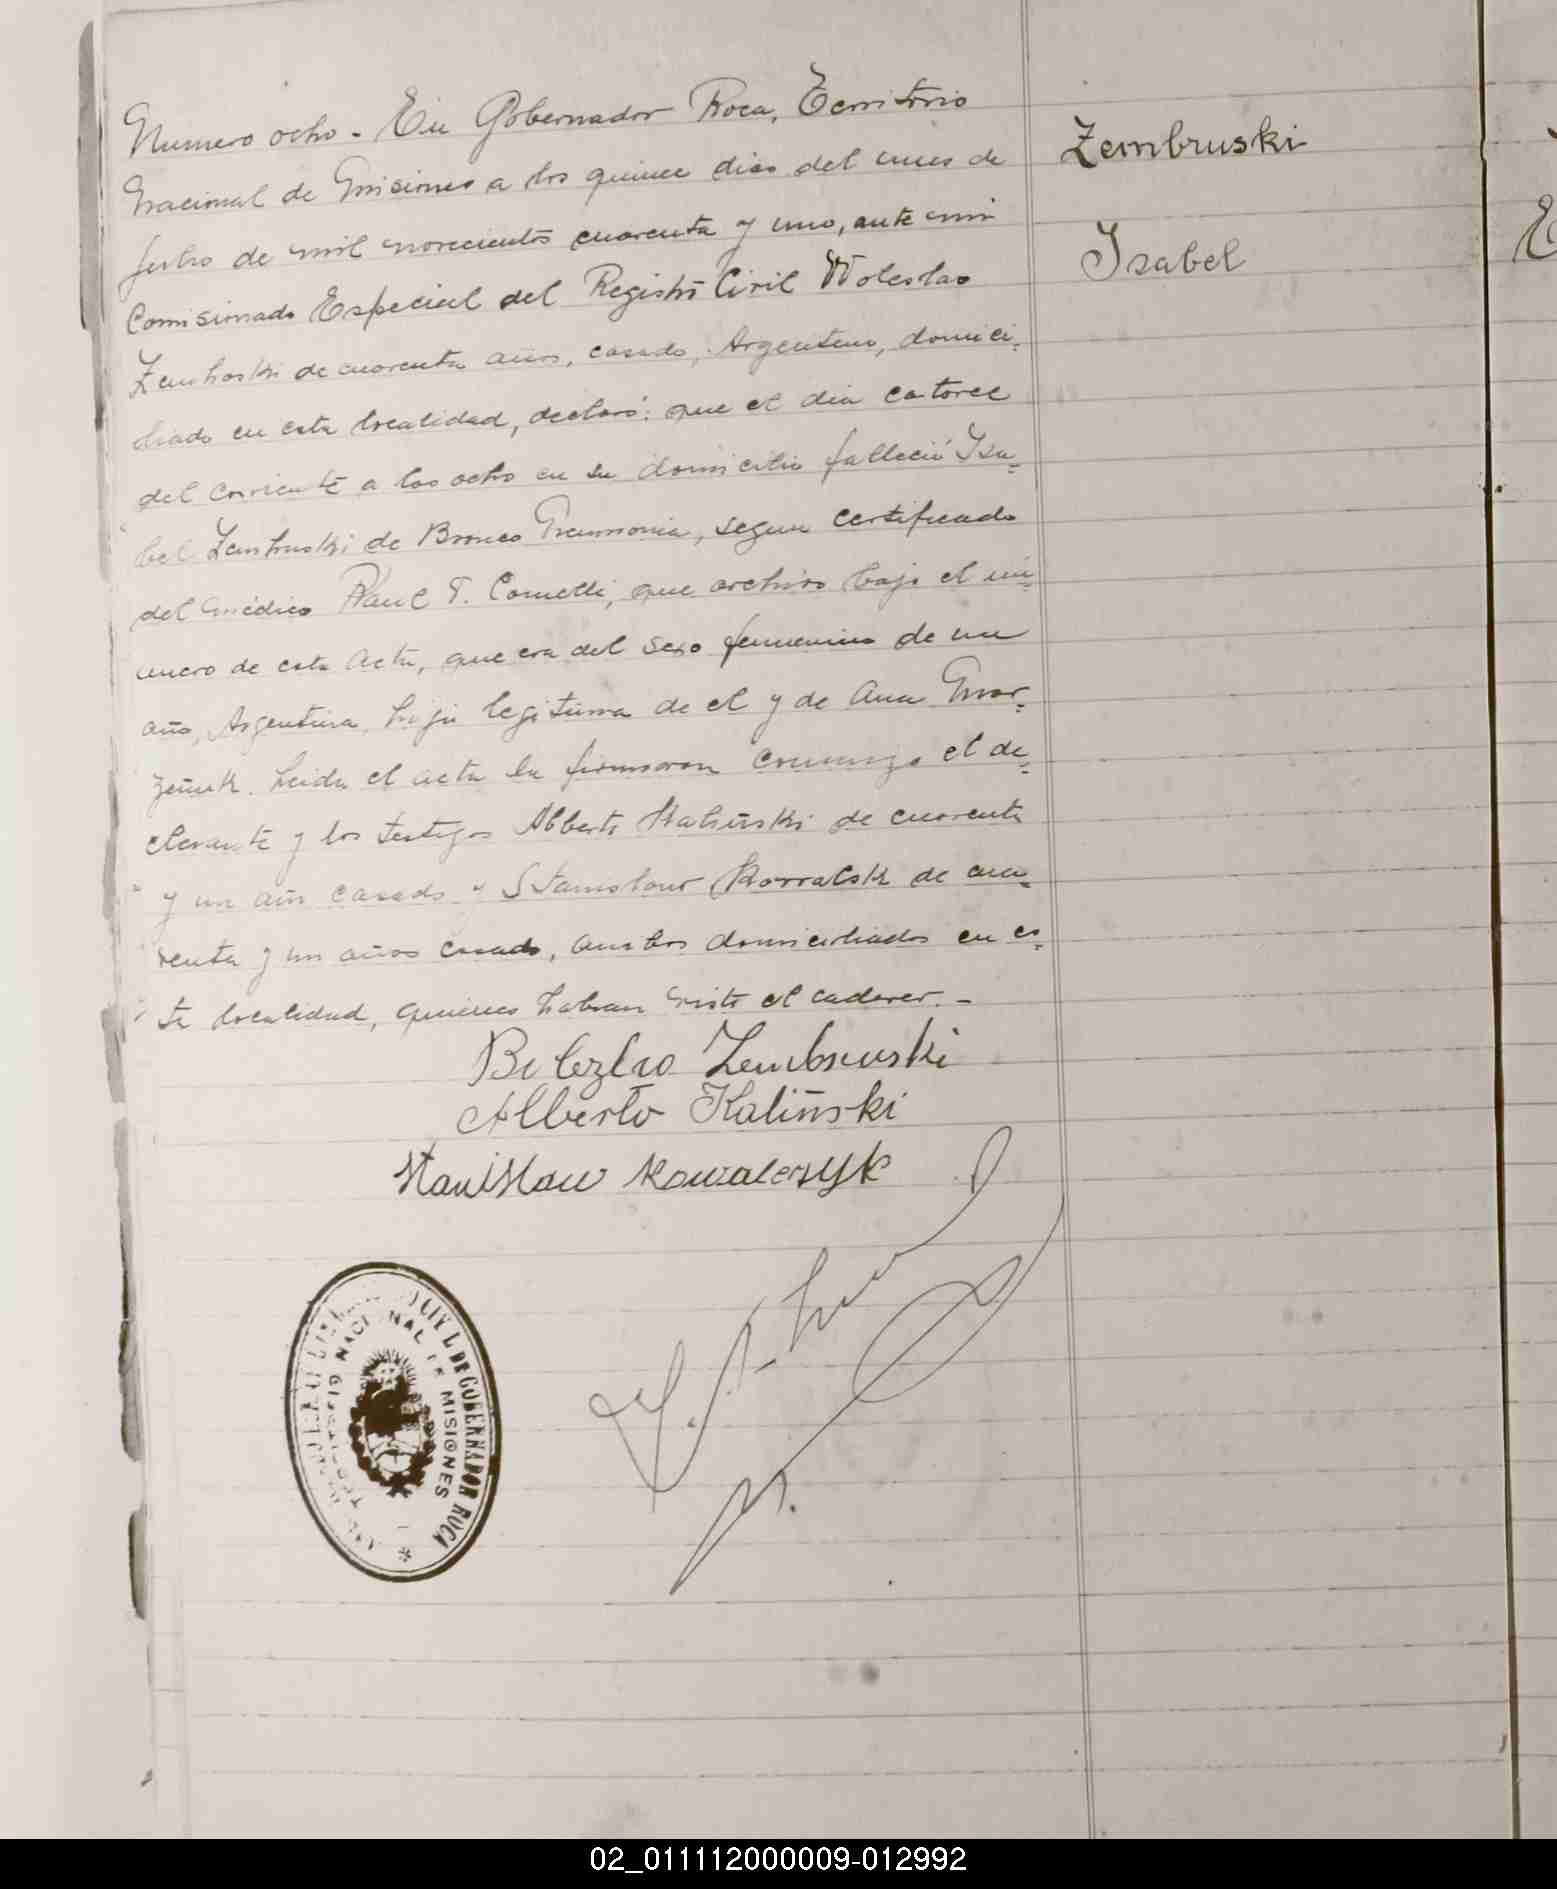 Numero ocho. - En Gobernador Roca, Territorio
Nacional de Misiones a los quince dias del mes de
Julio de mil novecientos cuarenta y uno, ante mi
Comisionado Especial del Registro Civil Woleslao
Zembroski de cuarenta años, casado, Argentino, domici-
liado en esta localidad, declaró: que el dia catorce
del corriente a las ocho en su domicilio falleció Isa-
bel Zembruski de Bronco Pneumonia, segun certificado
del médico Raul T. Comelli, que archivo bajo el nú-
mero de esta acta, que era del sexo femenino de un
año, Argentina, hija legitima de el y de Ana Mar-
. Leida el acta la firmaron conmigo el de-
clarante y los testigos Alberto Kaliñski de cuarenta
y un año casado y Stanislaw de cua-
renta y un años casado, ambos domiciliados en es-
ta localidad, quienes habian visto el cadaver. -
Boleslao Zembruski
Alberto Kaliñski
Stanislaw Kowalczyk
Zembruski
Isabel
CIVIL DE GOBERNADOR ROCA
TERRITORIO NACIONAL DE MISIONES
02_011112000009-012992